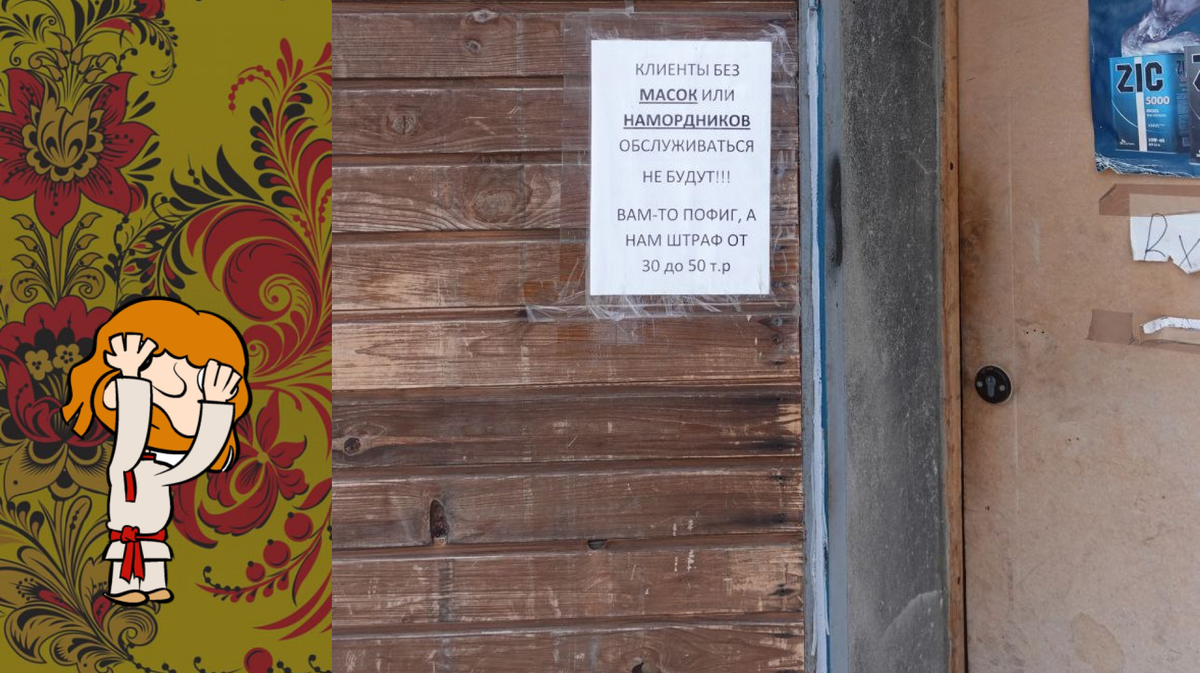 КЛИЕНТЫ БЕЗ
МАСОК ИЛИ
НАМОРДНИКОВ
ОБСЛУЖИВАТЬСЯ
НЕ БУДУТ!!!
ВАМ-ТО ПОФИГ, А
НАМ ШТРАФ ОТ
30 до 50 т.р
ZIC
5000